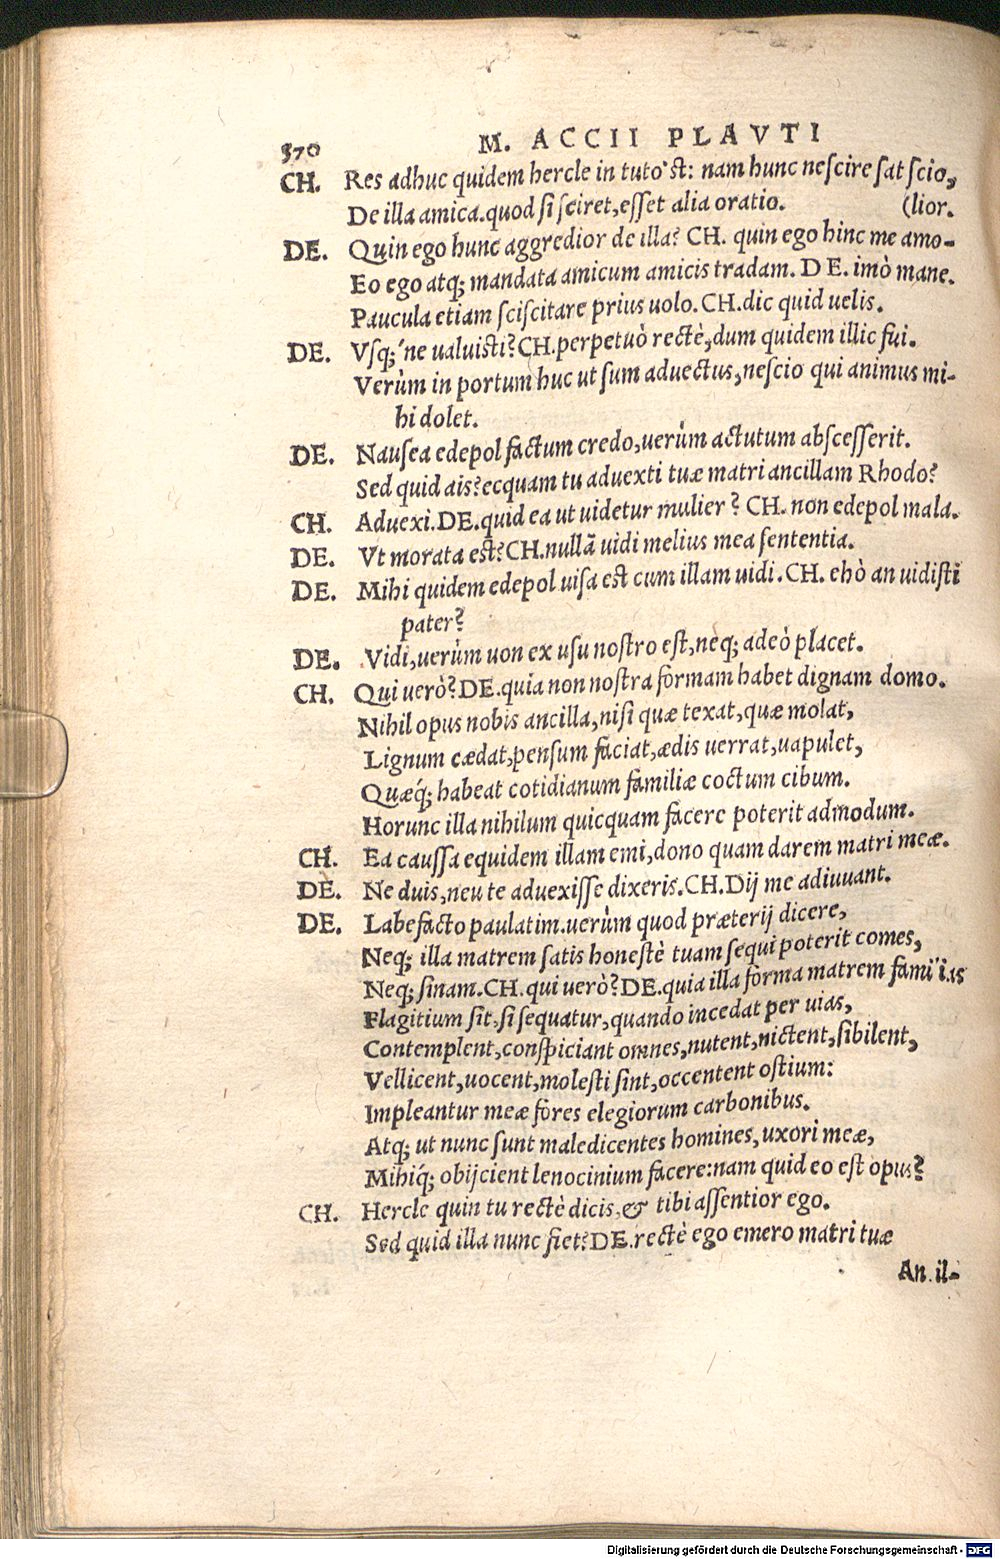 370 M. ACCII PLAVTI
CH. Res adhuc quidem hercle in tuto'st: nam hunc nescire sat scio,
De illa amica.quod si sciret,esset alia oratio. (lior.
DE. Quin ego hunc aggredior de illa? CH. quin ego hinc me amo-
Eo ego atq; mandata amicum amicis tradam. DE. imò mane.
Paucula etiam sciscitare prius uolo. CH.dic quid uelis.
DE. Vsq;'ne ualuisti?CH.perpetuò rectè,dum quidem illic fui.
Verùm in portum huc ut sum aduectus,nescio qui animus mi-
hi dolet.
DE. Nausea edepol factum credo,uerùm actutum abscesserit.
Sed quid ais?ecquam tu aduexti tuæ matri ancillam Rhodo?
CH. Aduexi.DE.quid ea ut uidetur mulier? CH. non edepol mala.
DE. Vt morata est?CH.nullã uidi melius mea sententia.
DE. Mihi quidem edepol uisa est cum illam uidi.CH. ehò an uidisti
pater?
DE. Vidi,uerùm uon ex usu nostro est,neq; adeò placet.
CH. Qui uerò?DE.quia non nostra formam habet dignam domo.
Nihil opus nobis ancilla,nisi quæ texat,quæ molat,
Lignum cædat,pensum faciat,ædis uerrat,uapulet,
Quæq́; habeat cotidianum familiæ coctum cibum.
Horunc illa nihilum quicquam facere poterit admodum.
CH. Ea caussa equidem illam emi,dono quam darem matri meæ.
DE. Ne duis,neu te aduexisse dixeris.CH.Dij me adiuuant.
DE. Labefacto paulatim.uerùm quod præterij dicere,
Neq; illa matrem satis honestè tuam sequi poterit comes,
Neq; sinam.CH.qui uerò?DE.quia illa forma matrem familias
Flagitium sit,si sequatur,quando incedat per uias,
Contemplent,conspiciant omnes,nutent,nictent,sibilent,
Vellicent,uocent,molesti sint,occentent ostium:
Impleantur meæ fores elegiorum carbonibus.
Atq; ut nunc sunt maledicentes homines,uxori meæ,
Mihiq́; obijcient lenocinium facere:nam quid eo est opus?
CH. Hercle quin tu rectè dicis,& tibi assentior ego.
Sed quid illa nunc fiet?DE.rectè ego emero matri tuæ
An.il-
Digitalisierung gefördert durch die Deutsche Forschungsgemeinschaft - DFG